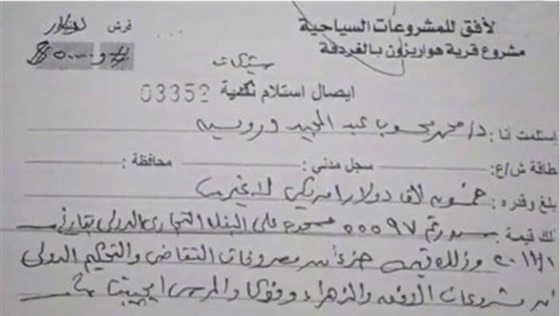 لأفق للمشروعات السياحية
مشروع قرية هواريزون بالغردقة
قرش دولار
شيكات
ايصال استلام نقدية 03352
استلمت أنا : د/ محمد محسوب عبد المجيد درويش
طاقة ش/ع : سجل مدني : محافظة :
بلغ وقدره : خمسون الف دولار امريكي لا غير
ذلك قيمة شيك رقم ٥٥٥٩٧ مسحوب على البنك التجارى الدولى بتاريخ
٢٠١١/١ وذلك قيمة جزء من مصروفات التقاضى والتحكيم الدولى
مشروعات الافق والزهراء و والمرسى ايجيبت